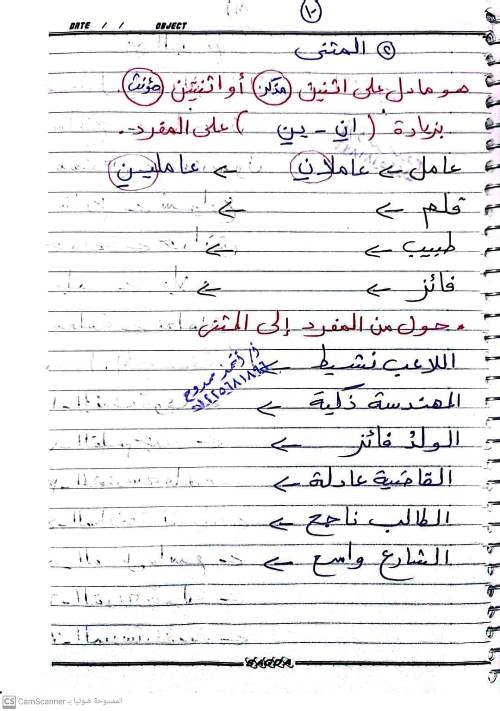 ١٠
DATE / / OBJECT
② المثنى
هو ما دل على اثنين مذكر أو اثنتين مؤنث
بزيادة ( ان - ين ) على المفرد.
عامل ← عاملان ← عاملين
قلم ← ←
طبيب ← ←
فائز ← ←
• حول من المفرد إلى المثنى
اللاعب نشيط ←
أ/ أحمد ممدوح
المهندسة ذكية ←
الولد فائز ←
القاضية عادلة ←
الطالب ناجح ←
الشارع واسع ←
SASODA
CS CamScanner الممسوحة ضوئيا بـ